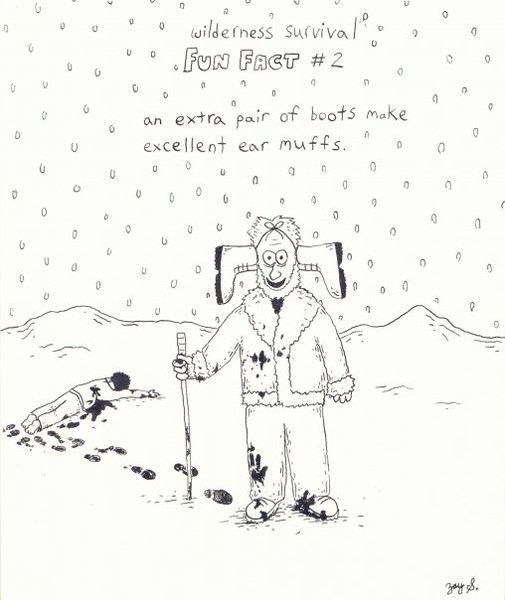 wilderness survival
FUN FACT #2
an extra pair of boots make
excellent ear muffs.
zay S.